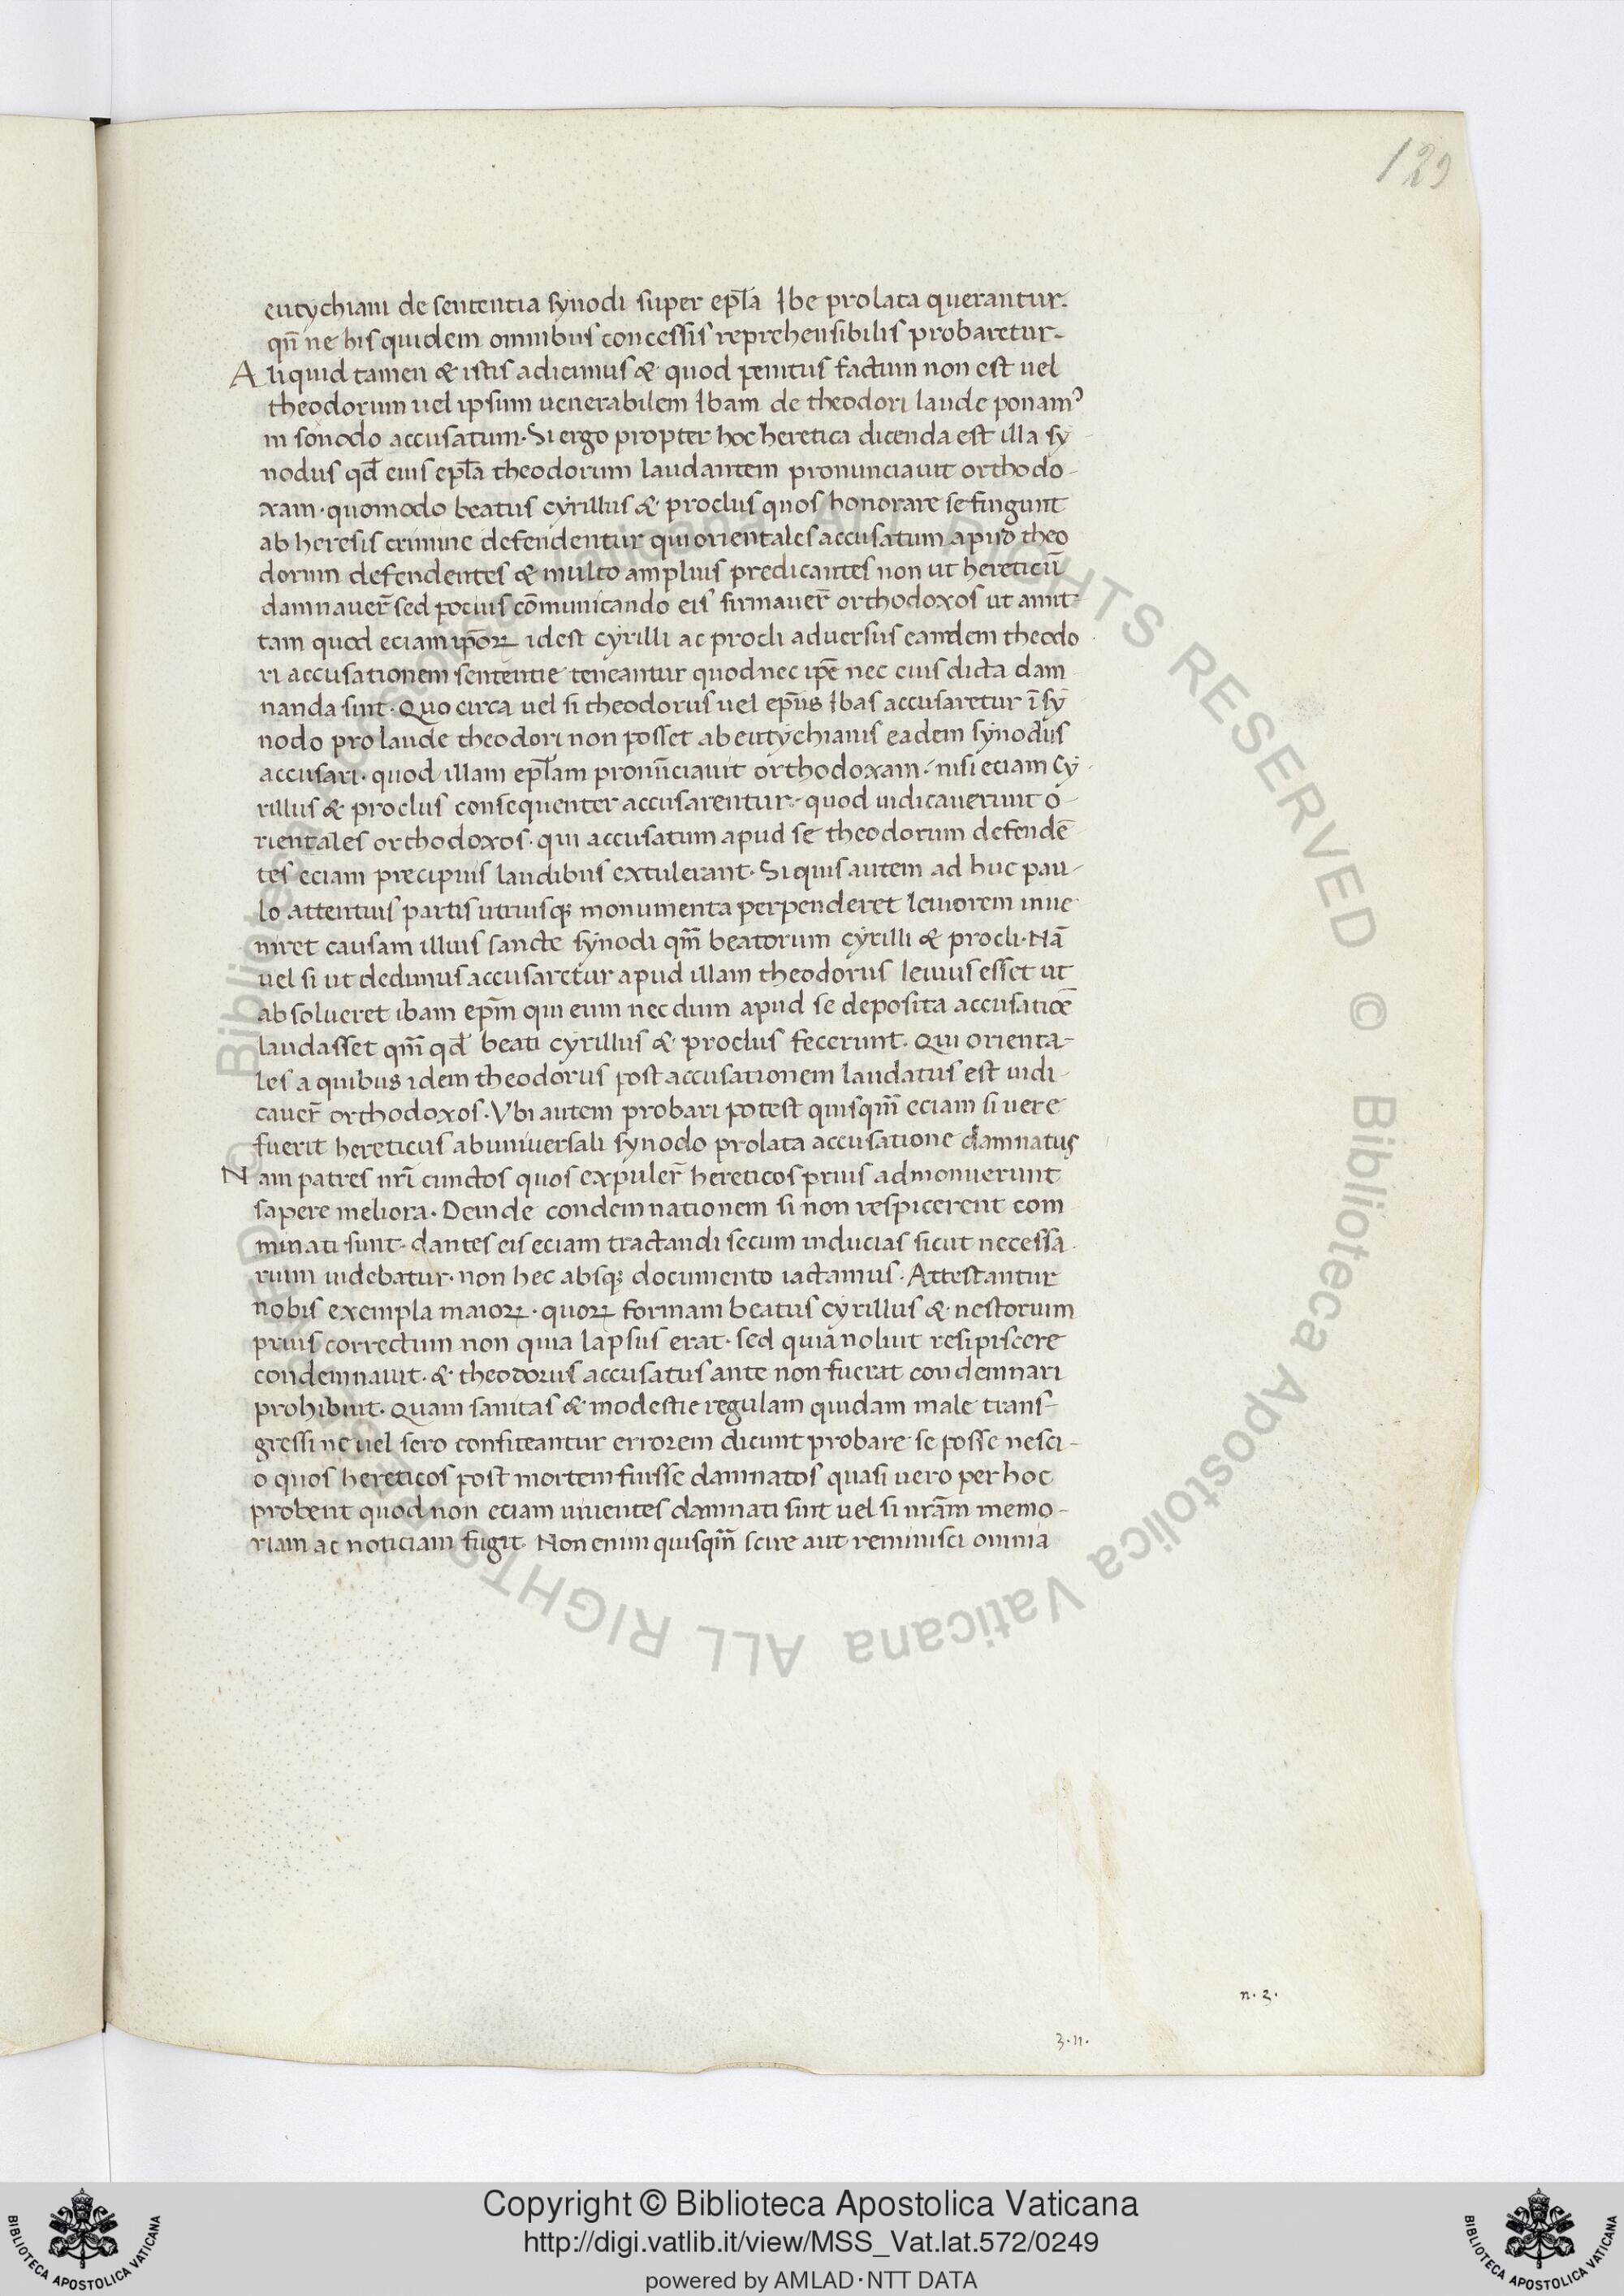 129
eutychiani de sententia synodi super epl̄a Ibe prolata querantur.
qn̄ ne his quidem omnibus concessis reprehensibilis probaretur.
Aliquid tamen & istis adicimus & quod penitus factum non est uel
theodorum uel ipsum uenerabilem Ibam de theodori laude ponamꝰ
in sonodo accusatum. Si ergo propter hoc heretica dicenda est illa sy
nodus qd̄ eius epl̄a theodorum laudantem pronunciauit orthodo-
xam. quomodo beatus cyrillus & proclus quos honorare se fingunt
ab heresis crimine defendentur qui orientales accusatum apud theo
dorum defendentes & multo amplius predicantes non ut hereticū
damnauer̄ sed pocius cōmunicando eis firmauer̄ orthodoxos ut amit
tam quod eciam ip̄oꝝ idest cyrilli ac procli aduersus eamdem theodo
ri accusationem sententie teneantur quod nec ip̄e nec eius dicta dam
nanda sint. Quo circa uel si theodorus uel ep̄us Ibas accusaretur ī sy
nodo pro laude theodori non posset ab eutychianis eadem synodus
accusari. quod illam epl̄am pronūciauit orthodoxam. nisi eciam Cy
rillus & proclus consequenter accusarentur. quod iudicauerunt o-
rientales orthodoxos. qui accusatum apud se theodorum defendē
tes eciam precipuis laudibus extulerant. Si quis autem ad huc pau-
lo attentius partis utriusqꝫ monumenta perpenderet leuiorem inue
niret causam illius sancte synodi qm̄ beatorum cyrilli & procli. Nā
uel si ut dedimus accusaretur apud illam theodorus leuius esset ut
absolueret ibam ep̄m qui eum nec dum apud se deposita accusatiōe
laudasset qm̄ qd̄ beati cyrillus & proclus fecerunt. Qui orienta-
les a quibus idem theodorus post accusationem laudatus est iudi-
cauer̄ orthodoxos. Vbi autem probari potest quisqm̄ eciam si uere
fuerit hereticus ab uniuersali synodo prolata accusatione damnatus
Nam patres nr̄i cunctos quos expuler̄ hereticos prius admonuerunt
sapere meliora. Deinde condemnationem si non respicerent com
minati sunt. dantes eis eciam tractandi secum inducias sicut necessa
rium uidebatur. non hec absqꝫ documento iactamus. Attestantur
nobis exempla maioꝝ. quoꝝ formam beatus cyrillus & nestorium
prius correctum non quia lapsus erat. sed quia noluit resipiscere
condemnauit. & theodorus accusatus ante non fuerat condemnari
prohibuit. Quam sanitas & modestie regulam quidam male trans-
gressi ne uel sero confiteantur errorem dicunt probare se posse nesci-
o quos hereticos post mortem fuisse damnatos quasi uero per hoc
probent quod non eciam uiuentes damnati sint uel si nr̄am memo-
riam ac noticiam fugit. Non enim quisqm̄ scire aut reminisci omnia
n. 2.
3. n.
© Biblioteca Apostolica Vaticana ALL RIGHTS RESERVED
© Biblioteca Apostolica Vaticana ALL RIGHTS RESERVED
BIBLIOTECA APOSTOLICA VATICANA
Copyright © Biblioteca Apostolica Vaticana
http://digi.vatlib.it/view/MSS_Vat.lat.572/0249
powered by AMLAD·NTT DATA
BIBLIOTECA APOSTOLICA VATICANA